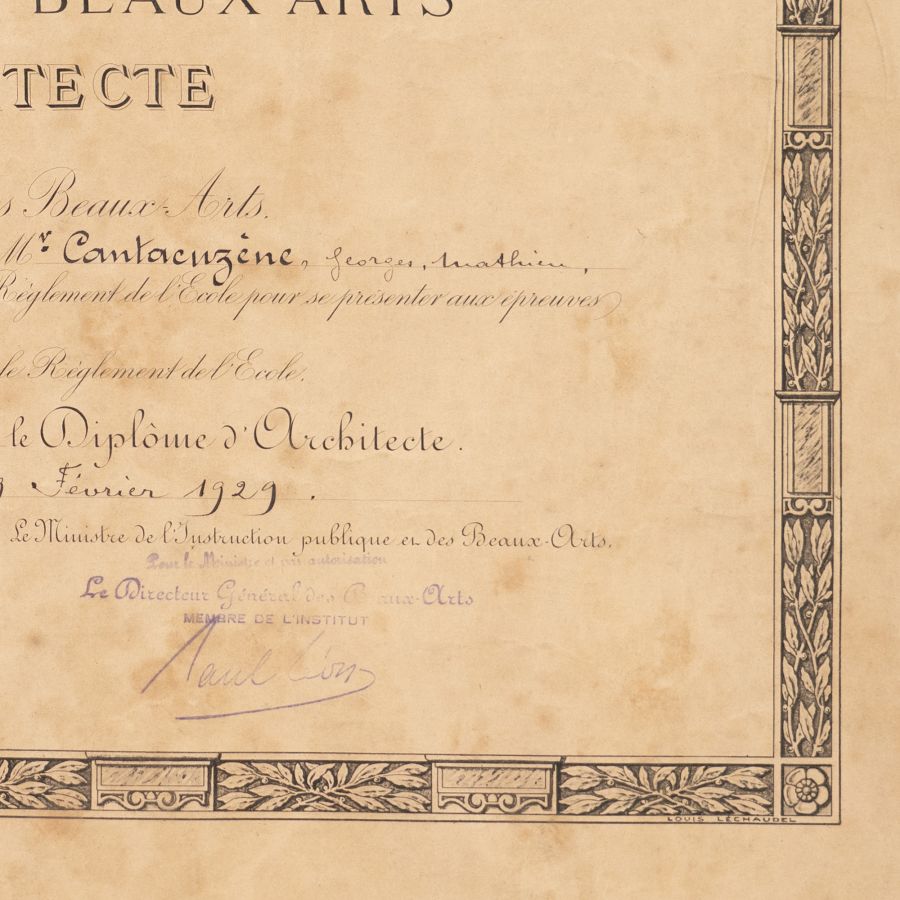 BEAUX ARTS
TECTE
s Beaux-Arts.
Mr. Cantacuzène, Georges, Mathieu,
Règlement de l'Ecole pour se présenter aux épreuves
le Règlement de l'Ecole.
le Diplôme d'Architecte.
Février 1929.
Le Ministre de l'Instruction publique et des Beaux-Arts.
Pour le Ministre et par autorisation
Le Directeur Général des Beaux-Arts
MEMBRE DE L'INSTITUT
Paul Léon
LOUIS LÉCHAUDEL